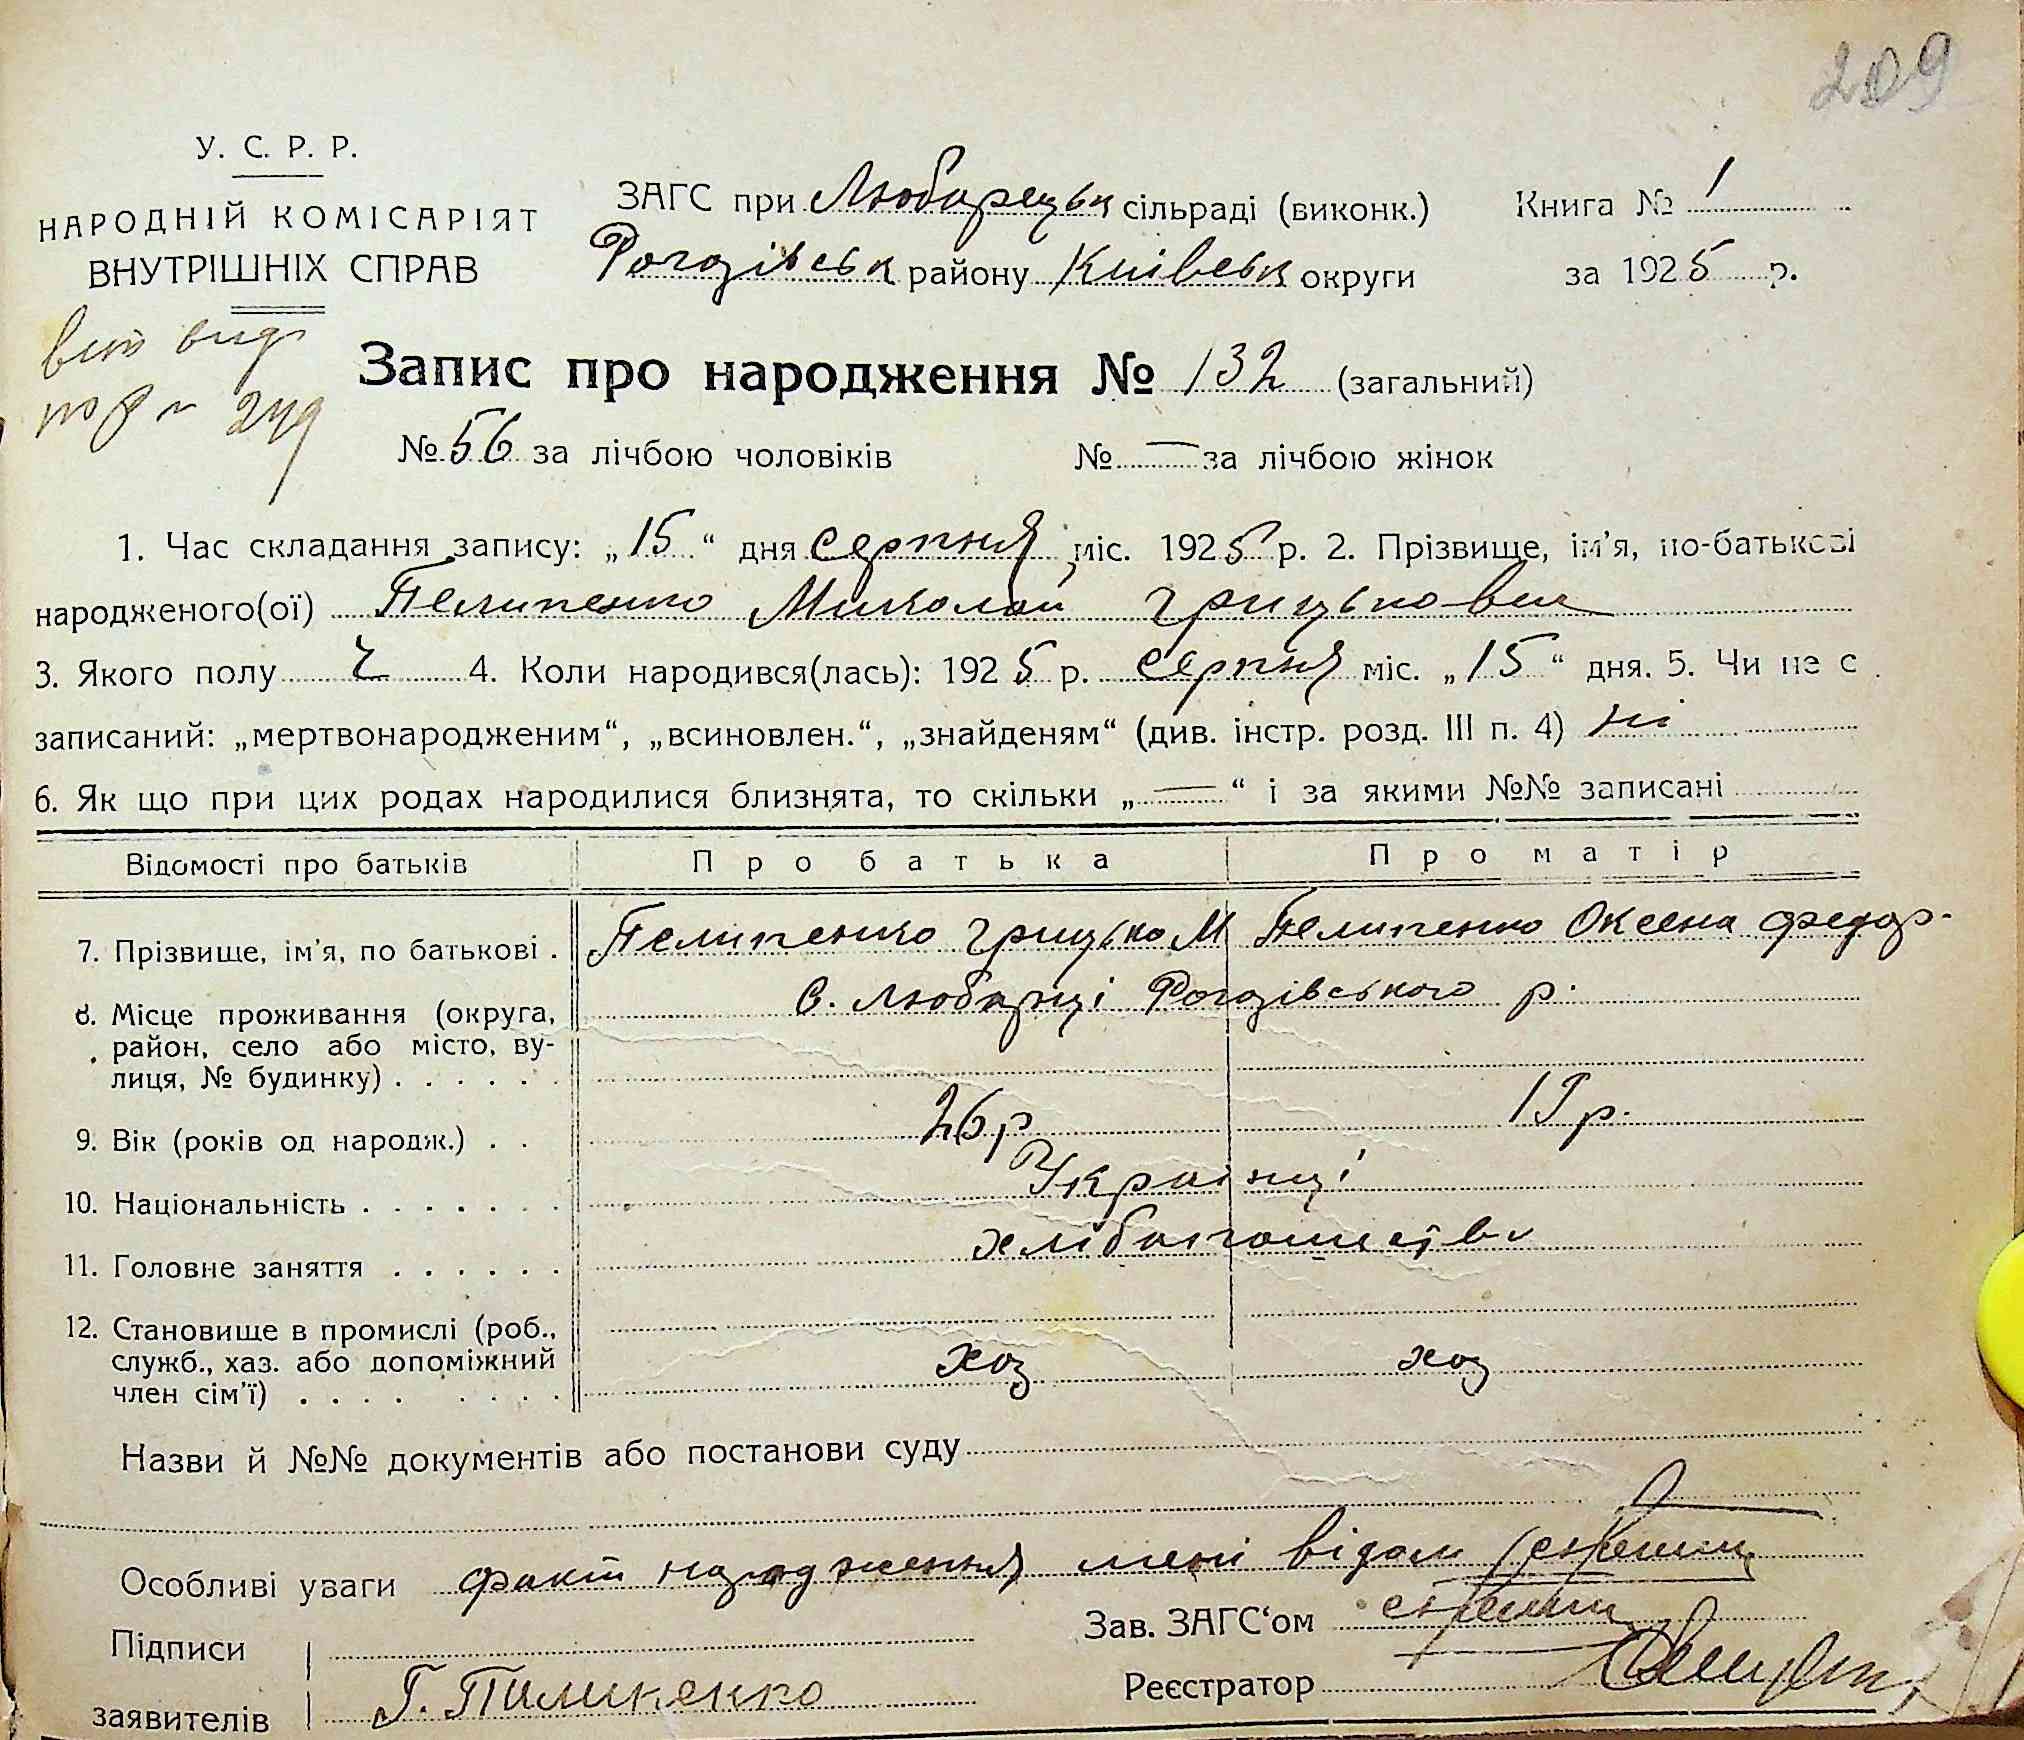 209
У. С. Р. Р.
НАРОДНІЙ КОМІСАРІЯТ
ВНУТРІШНІХ СПРАВ
ЗАГС при Любарецьк сільраді (виконк.)
Рогозівськ району Київськ округи
Книга № 1
за 1925 р.
Запис про народження № 132 (загальний)
№ 56 за лічбою чоловіків № — за лічбою жінок
1. Час складання запису: „15“ дня серпня міс. 1925 р. 2. Прізвище, ім’я, по-батькові
народженого(ої) Пелипенко Миколай Грицькович
3. Якого полу ч 4. Коли народився(лась): 1925 р. серпня міс. „15“ дня. 5. Чи не є
записаний: „мертвонародженим“, „всиновлен.“, „знайденям“ (див. інстр. розд. III п. 4) ні
6. Як що при цих родах народилися близнята, то скільки „—“ і за якими №№ записані
Відомості про батьків Про батька Про матір
7. Прізвище, ім’я, по батькові . Пелипенко Грицько М Пелипенко Оксена Федор-
8. Місце проживання (округа, с. Любарці Рогозівського р.
район, село або місто, ву-
лиця, № будинку) . . . . . .
9. Вік (років од народж.) . . 26 р 19 р.
10. Національність . . . . . . . Українці
11. Головне заняття . . . . . . хлібопашеств
12. Становище в промислі (роб.,
служб., хаз. або допоміжний хоз хоз
член сім’ї) . . . . . . . .
Назви й №№ документів або постанови суду
Особливі уваги факт народження мені відом
Підписи Зав. ЗАГС‘ом
заявителів Г. Пилипенко Реєстратор